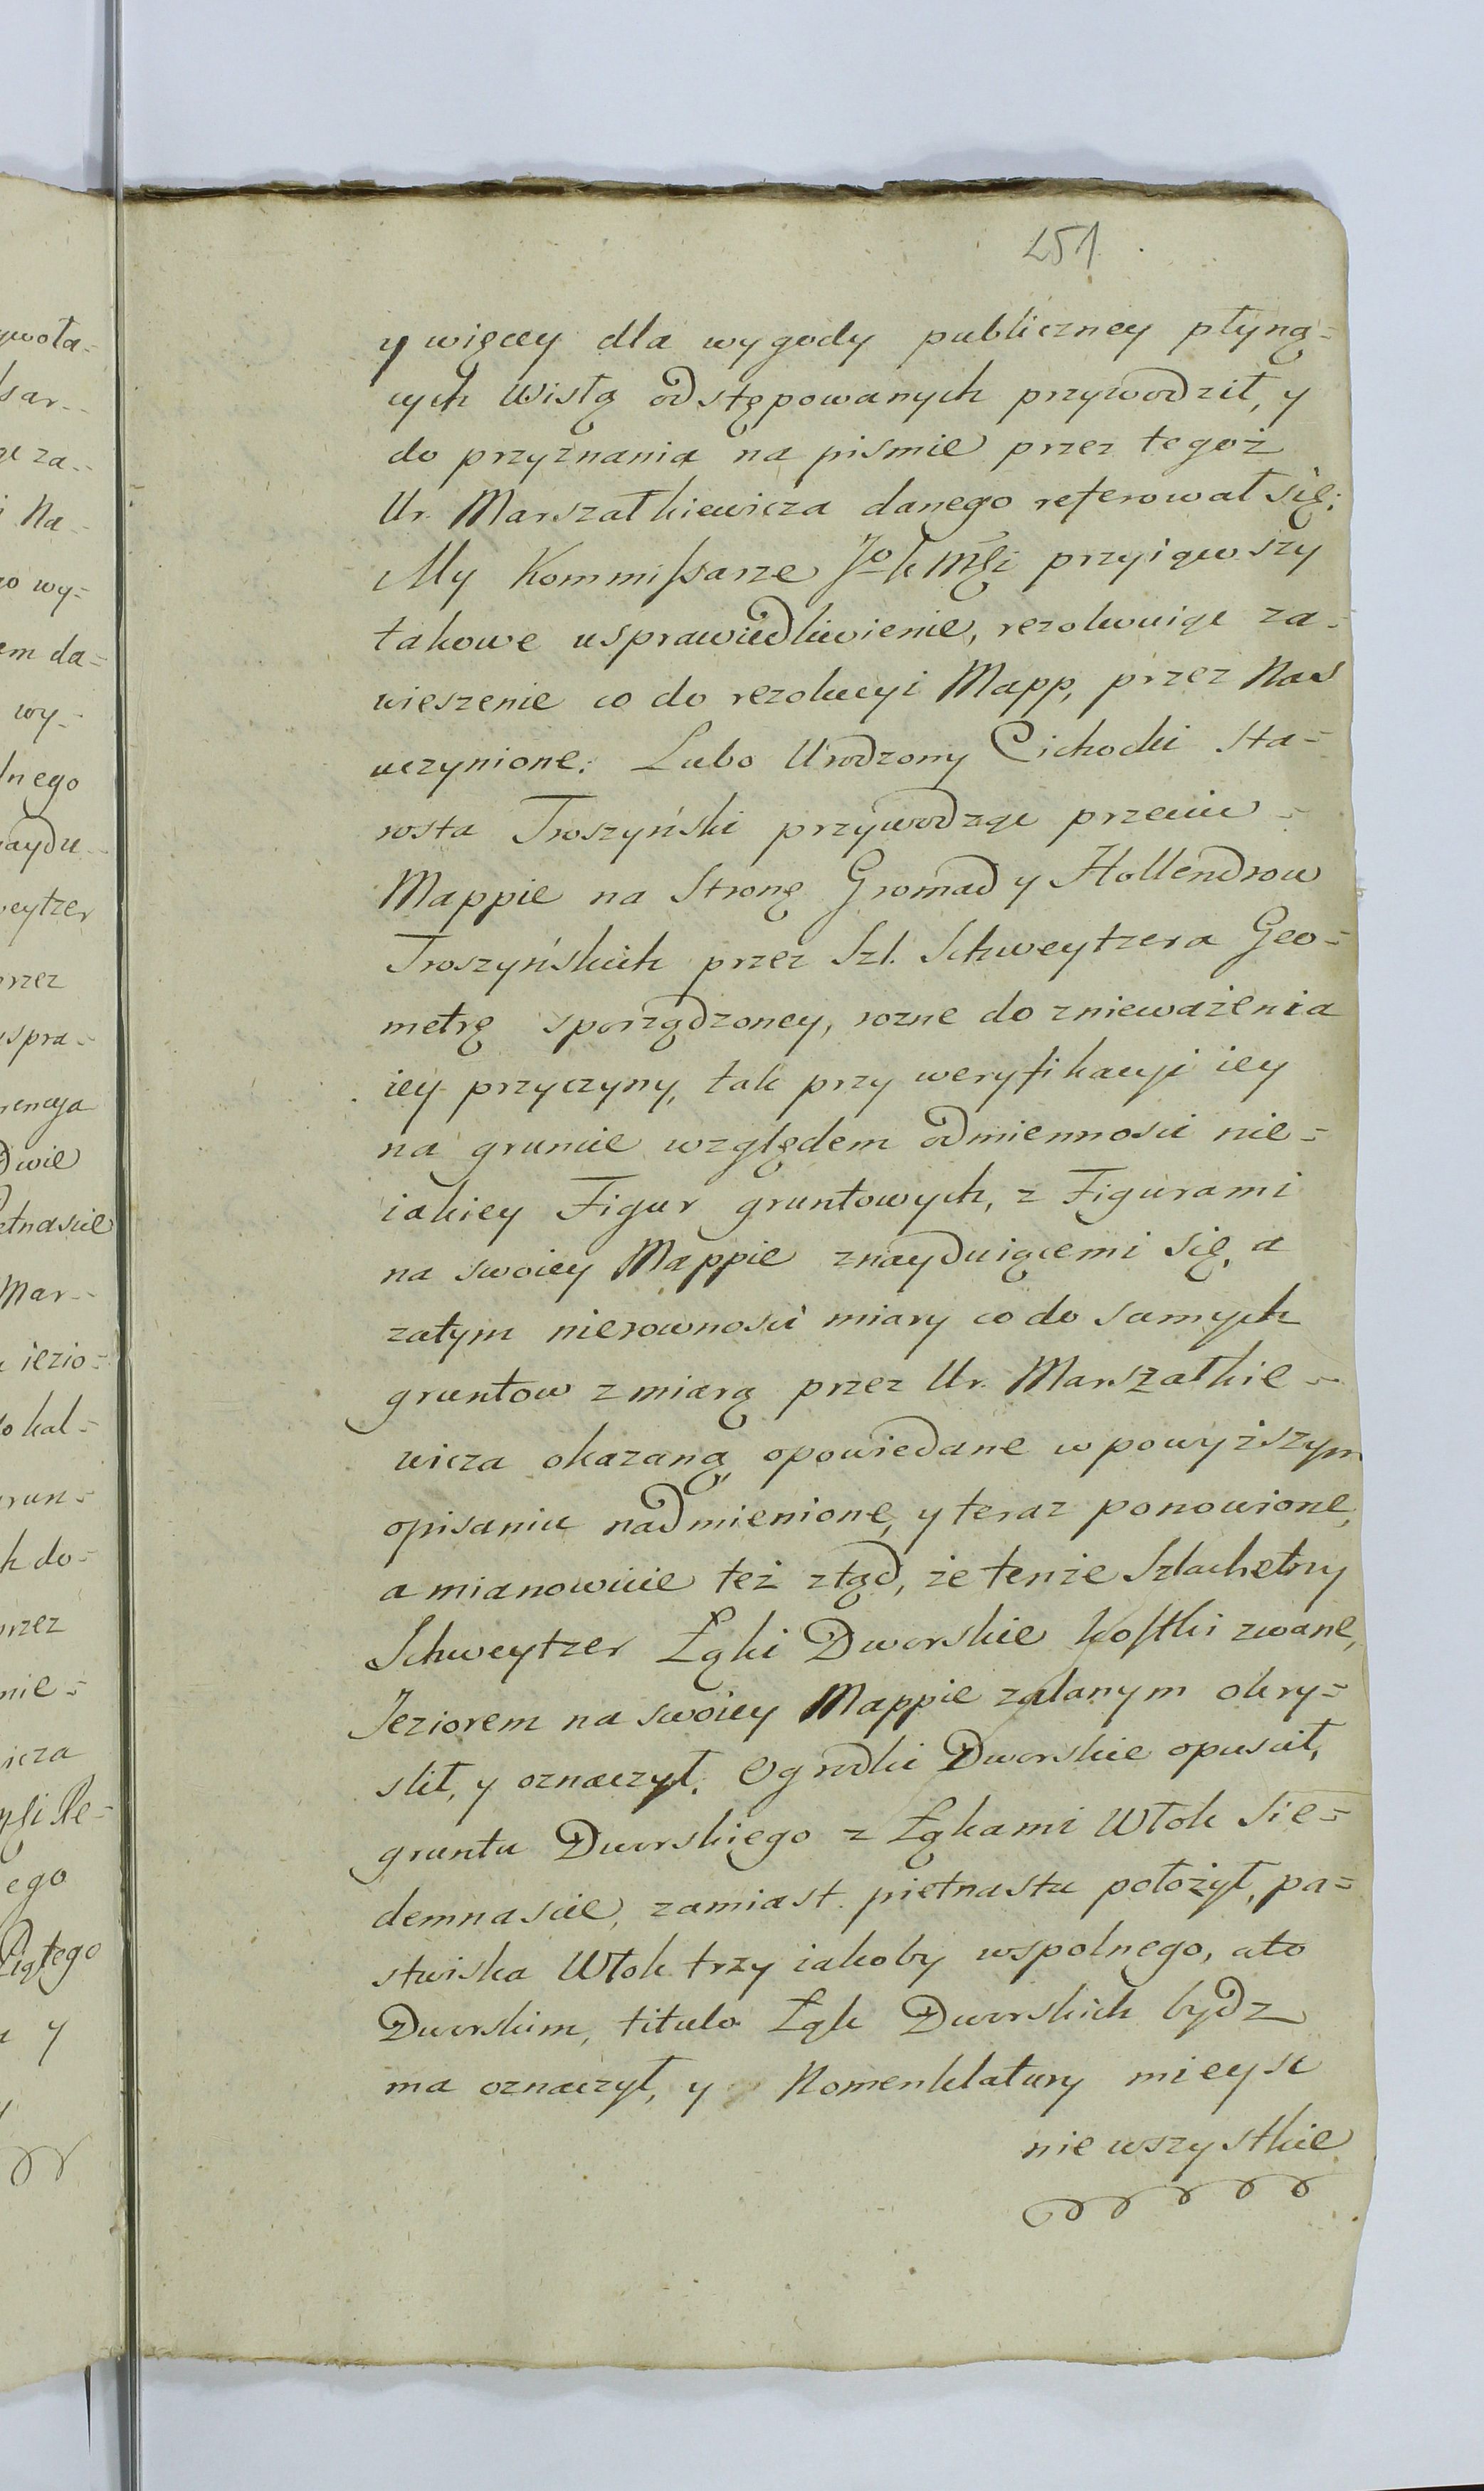 251
y więcey dla wygody publiczney płyną=
cych Wisłą odstępowanych przywodził, y
do przyznania na pismie przez tegoż
Ur. Marszałkiewicza danego referował się:
My Kommissarze JoKMśći przyiąwszy
takowe usprawiedliwienie, rezolwuiąc za=
wieszenie co do rezolucyi Mapp, przez Nas
uczynione: Lubo Urodzony Cichocki Sta=
rosta Troszyński przywodząc przeciw=
Mappie na Stronę Gromady Hollendrow
Troszyńskich przez Szl. Schweytzera Geo=
metrę sporządzoney, rozne do znieważenia
iey przyczyny, tak przy weryfikacyi iey
na gruncie względem odmiennosci nie=
iakiey Figur gruntowych, z Figurami
na swoiey Mappie znayduiącemi się, a
zatym nierownosci miary co do samych
gruntow z miarą przez Ur. Marszałkie=
wicza okazaną opowiedane w powyższym
opisaniu nadmienione, y teraz ponowione,
a mianowicie też ztąd, że tenże Szlachetny
Schweytzer Łąki Dworskie Kostki zwane,
Jeziorem na swoiey Mappie zalanym okry=
slił, y oznaczył. Ogrodki Dworskie opuscił,
gruntu Dworskiego z Łąkami Włok Sie=
demnascie, zamiast pietnastu położył, pa=
stwiska Włok trzy iakoby wspolnego, ato
Dworskim, titulo Łąk Dworskich bydz
ma oznaczył, y Nomenklatury mieysc
nie wszystkie